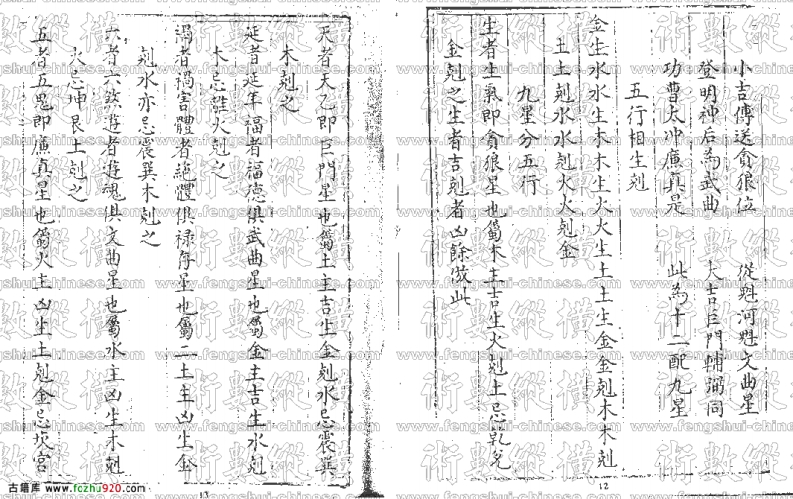 小吉傳送貪狼位　從魁河魁文曲星
登明神后為武曲　大吉巨門輔弼同
功曹太冲廉真是　此為十二配九星
五行相生剋
金生水水生木木生火火生土土生金金剋木木剋
土土剋水水剋火火剋金
九星分五行
生者生氣即貪狼星也屬木主吉生火剋土忌乾兌
金剋之生者吉剋者凶餘倣此
12
天者天乙即巨門星也屬土主吉生金剋水忌震巽
木剋之
延者延年福者福德俱武曲星也屬金主吉生水剋
木忌離火剋之
禍者禍害體者絕體俱禄存星也屬二土主凶生金
剋水亦忌震巽木剋之
六者六煞遊者遊魂俱文曲星也屬水主凶生木剋
火忌坤艮土剋之
五者五鬼即廉真星也屬火主凶生土剋金忌坎宮
13
術數縱橫
www.fengshui-chinese.com
古籍库 www.fczhu920.com